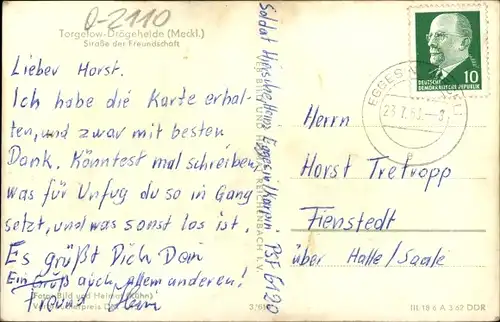 0-2110
Torgelow-Drögeheide (Meckl.)
Straße der Freundschaft
Lieber Horst.
Ich habe die Karte erhal-
ten, und zwar mit besten
Dank. Könntest mal schreiben,
was für Unfug du so in Gang
setzt, und was sonst los ist.
Es grüßt Dich Dein
Freund Hein
Ein Gruß auch allem anderen!
Foto: Bild und Heimat (Kühn)
Soldat Hirsch Hein Eggesin/Karpin PSF 6120
VEB BILD UND HEIMAT REICHENBACH I. V.
EGGESIN
DEUTSCHE
DEMOKRATISCHE REPUBLIK
10
Herrn
Horst Tretropp
Fienstedt
über Halle/Saale
III/18/6 A 3/62 DDR